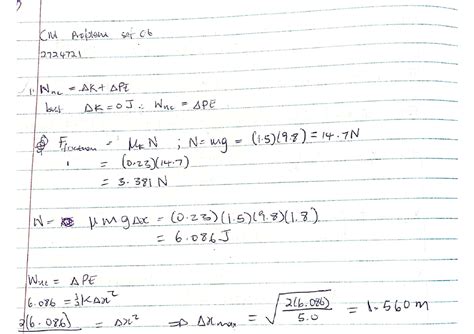 CM Problem set C6
2724721
1. Wnc = ΔK + ΔPE
but ΔK = 0J ∴ Wnc = ΔPE
Ffriction = μkN ; N = mg = (1.5)(9.8) = 14.7N
" = (0.23)(14.7)
= 3.381N
W = μmgΔx = (0.23)(1.5)(9.8)(1.8)
= 6.086J
Wnc = ΔPE
6.086 = ½KΔx²
2(6.086) = Δx² ⇒ Δxmax = √2(6.086)/5.0 = 1.560m